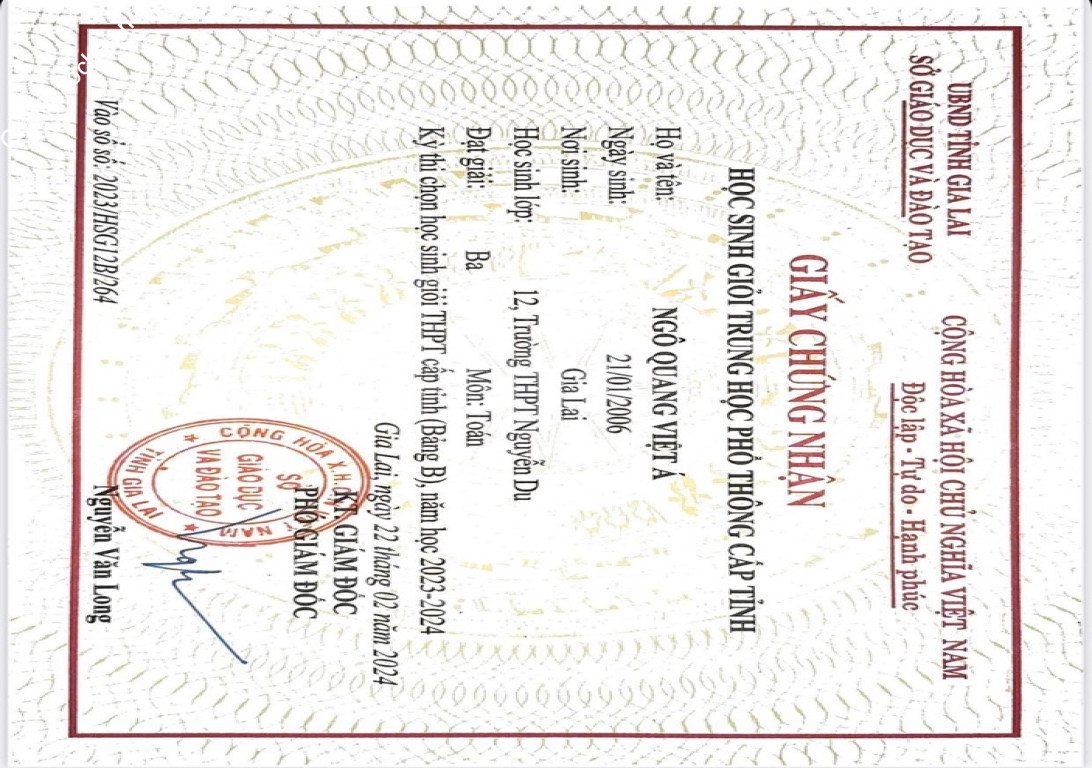 UBND TỈNH GIA LAI
SỞ GIÁO DỤC VÀ ĐÀO TẠO
CỘNG HÒA XÃ HỘI CHỦ NGHĨA VIỆT NAM
Độc lập - Tự do - Hạnh phúc
GIẤY CHỨNG NHẬN
HỌC SINH GIỎI TRUNG HỌC PHỔ THÔNG CẤP TỈNH
Họ và tên: NGÔ QUANG VIỆT Á
Ngày sinh: 21/01/2006
Nơi sinh: Gia Lai
Học sinh lớp: 12, Trường THPT Nguyễn Du
Đạt giải: Ba Môn: Toán
Kỳ thi chọn học sinh giỏi THPT cấp tỉnh (Bảng B), năm học 2023-2024
Gia Lai, ngày 22 tháng 02 năm 2024
KT. GIÁM ĐỐC
PHÓ GIÁM ĐỐC
CỘNG HÒA X.H.
NAM
SỞ
GIÁO DỤC
VÀ ĐÀO TẠO
TỈNH GIA LAI
Vào sổ số: 2023/HSG12B/264
Nguyễn Văn Long